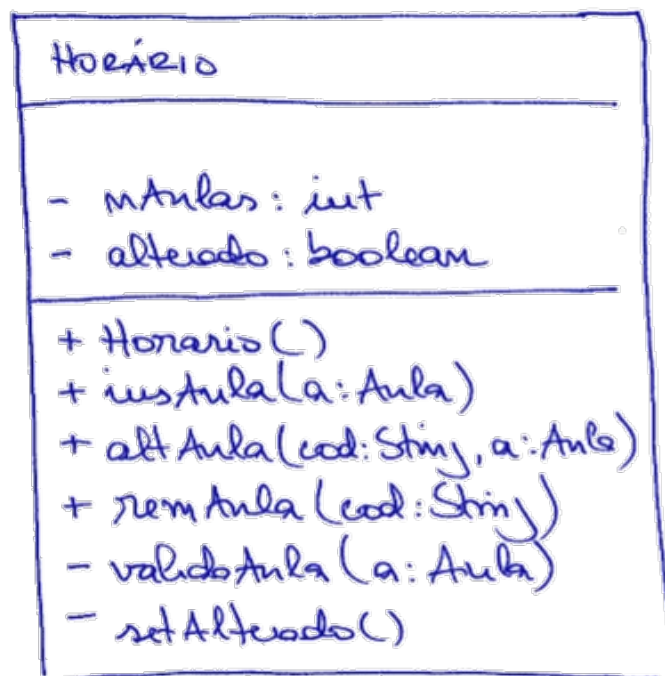 HORÁRIO
- nAulas: int
- alterado: boolean
+ Horario()
+ insAula(a: Aula)
+ altAula(cod: String, a: Aula)
+ remAula(cod: String)
- validaAula(a: Aula)
- setAlterado()